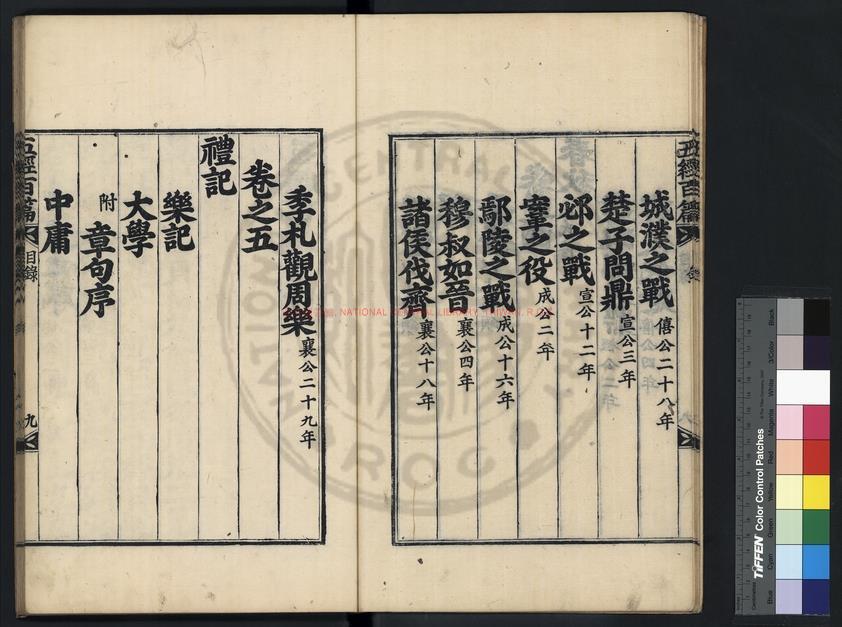 五經百篇
城濮之戰 僖公二十八年
楚子問鼎 宣公三年
邲之戰 宣公十二年
鞌之役 成公二年
鄢陵之戰 成公十六年
穆叔如晉 襄公四年
諸侯伐齊 襄公十八年
季札觀周樂 襄公二十九年
卷之五
禮記
樂記
大學
附 章句序
中庸
五經百篇 目錄 九
NATIONAL CENTRAL LIBRARY, TAIWAN, R.O.C
TIFFEN Color Control Patches
Blue
Cyan
Green
Yellow
Red
Magenta
White
3/Color
Black